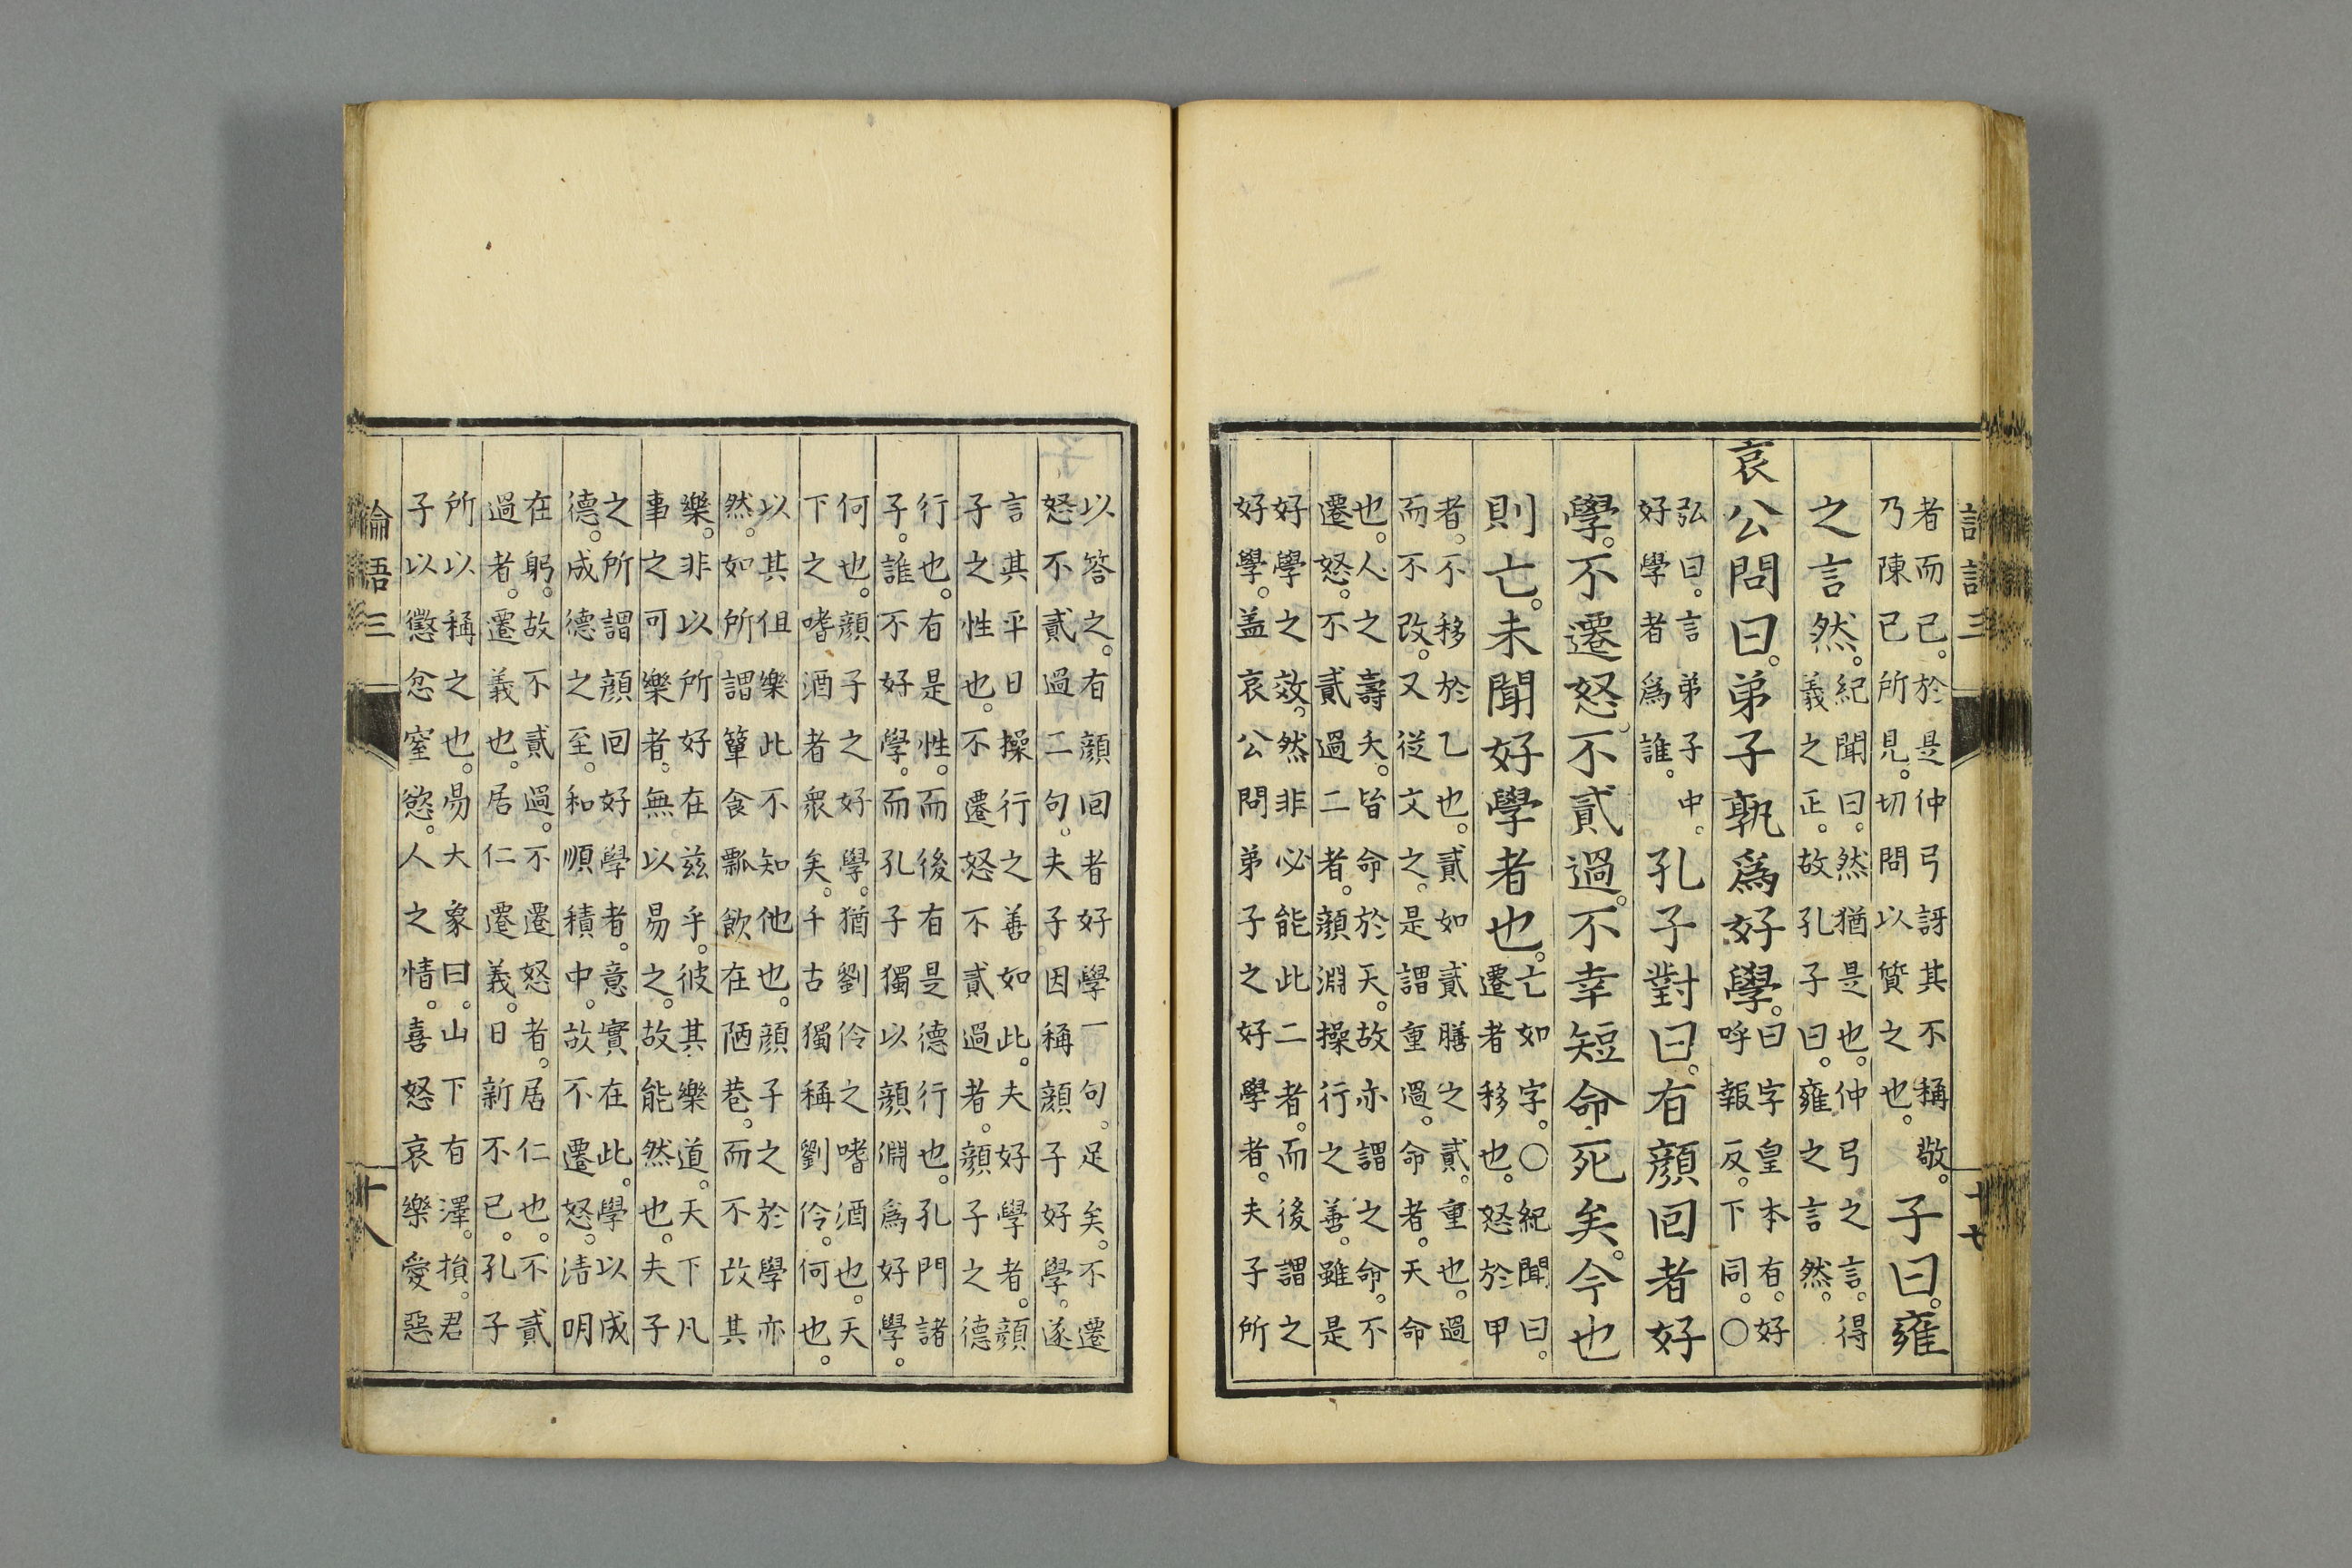 者而已。於是仲弓訝其不稱敬。
乃陳已所見。切問以質之也。
子曰。雍
之言然。
紀聞曰。然猶是也。仲弓之言。得
義之正。故孔子曰。雍之言然。
哀公問曰。弟子孰爲好學。
曰字皇本有。好
呼報反。下同。〇
弘曰。言弟子中。
好學者爲誰。
孔子對曰。有顏回者好
學。不遷怒。不貳過。不幸短命死矣。今也
則亡。未聞好學者也。
亡如字。〇紀聞曰。
遷者移也。怒於甲
者。不移於乙也。貳如貳膳之貳。重也。過
而不改。又從文之。是謂重過。命者。天命
也。人之壽夭。皆命於天。故亦謂之命。不
遷怒。不貳過二者。顏淵操行之善。雖是
好學之效。然非必能此二者。而後謂之
好學。蓋哀公問弟子之好學者。夫子所
以答之。有顏回者好學一句。足矣。不遷
怒不貳過二句。夫子因稱顏子好學。遂
言其平日操行之善如此。夫好學者。顏
子之性也。不遷怒不貳過者。顏子之德
行也。有是性。而後有是德行也。孔門諸
子。誰不好學。而孔子獨以顏淵爲好學。
何也。顏子之好學。猶劉伶之嗜酒也。天
下之嗜酒者衆矣。千古獨稱劉伶。何也。
以其但樂此不知他也。顏子之於學亦
然。如所謂簞食瓢飲在陋巷。而不改其
樂。非以所好在茲乎。彼其樂道。天下凡
事之可樂者。無以易之。故能然也。夫子
之所謂顏回好學者。意實在此。學以成
德。成德之至。和順積中。故不遷怒。淸明
在躬。故不貳過。不遷怒者。居仁也。不貳
過者。遷義也。居仁遷義。日新不已。孔子
所以稱之也。易大象曰。山下有澤。損。君
子以懲忿窒慾。人之情。喜怒哀樂愛惡
論語三
十八